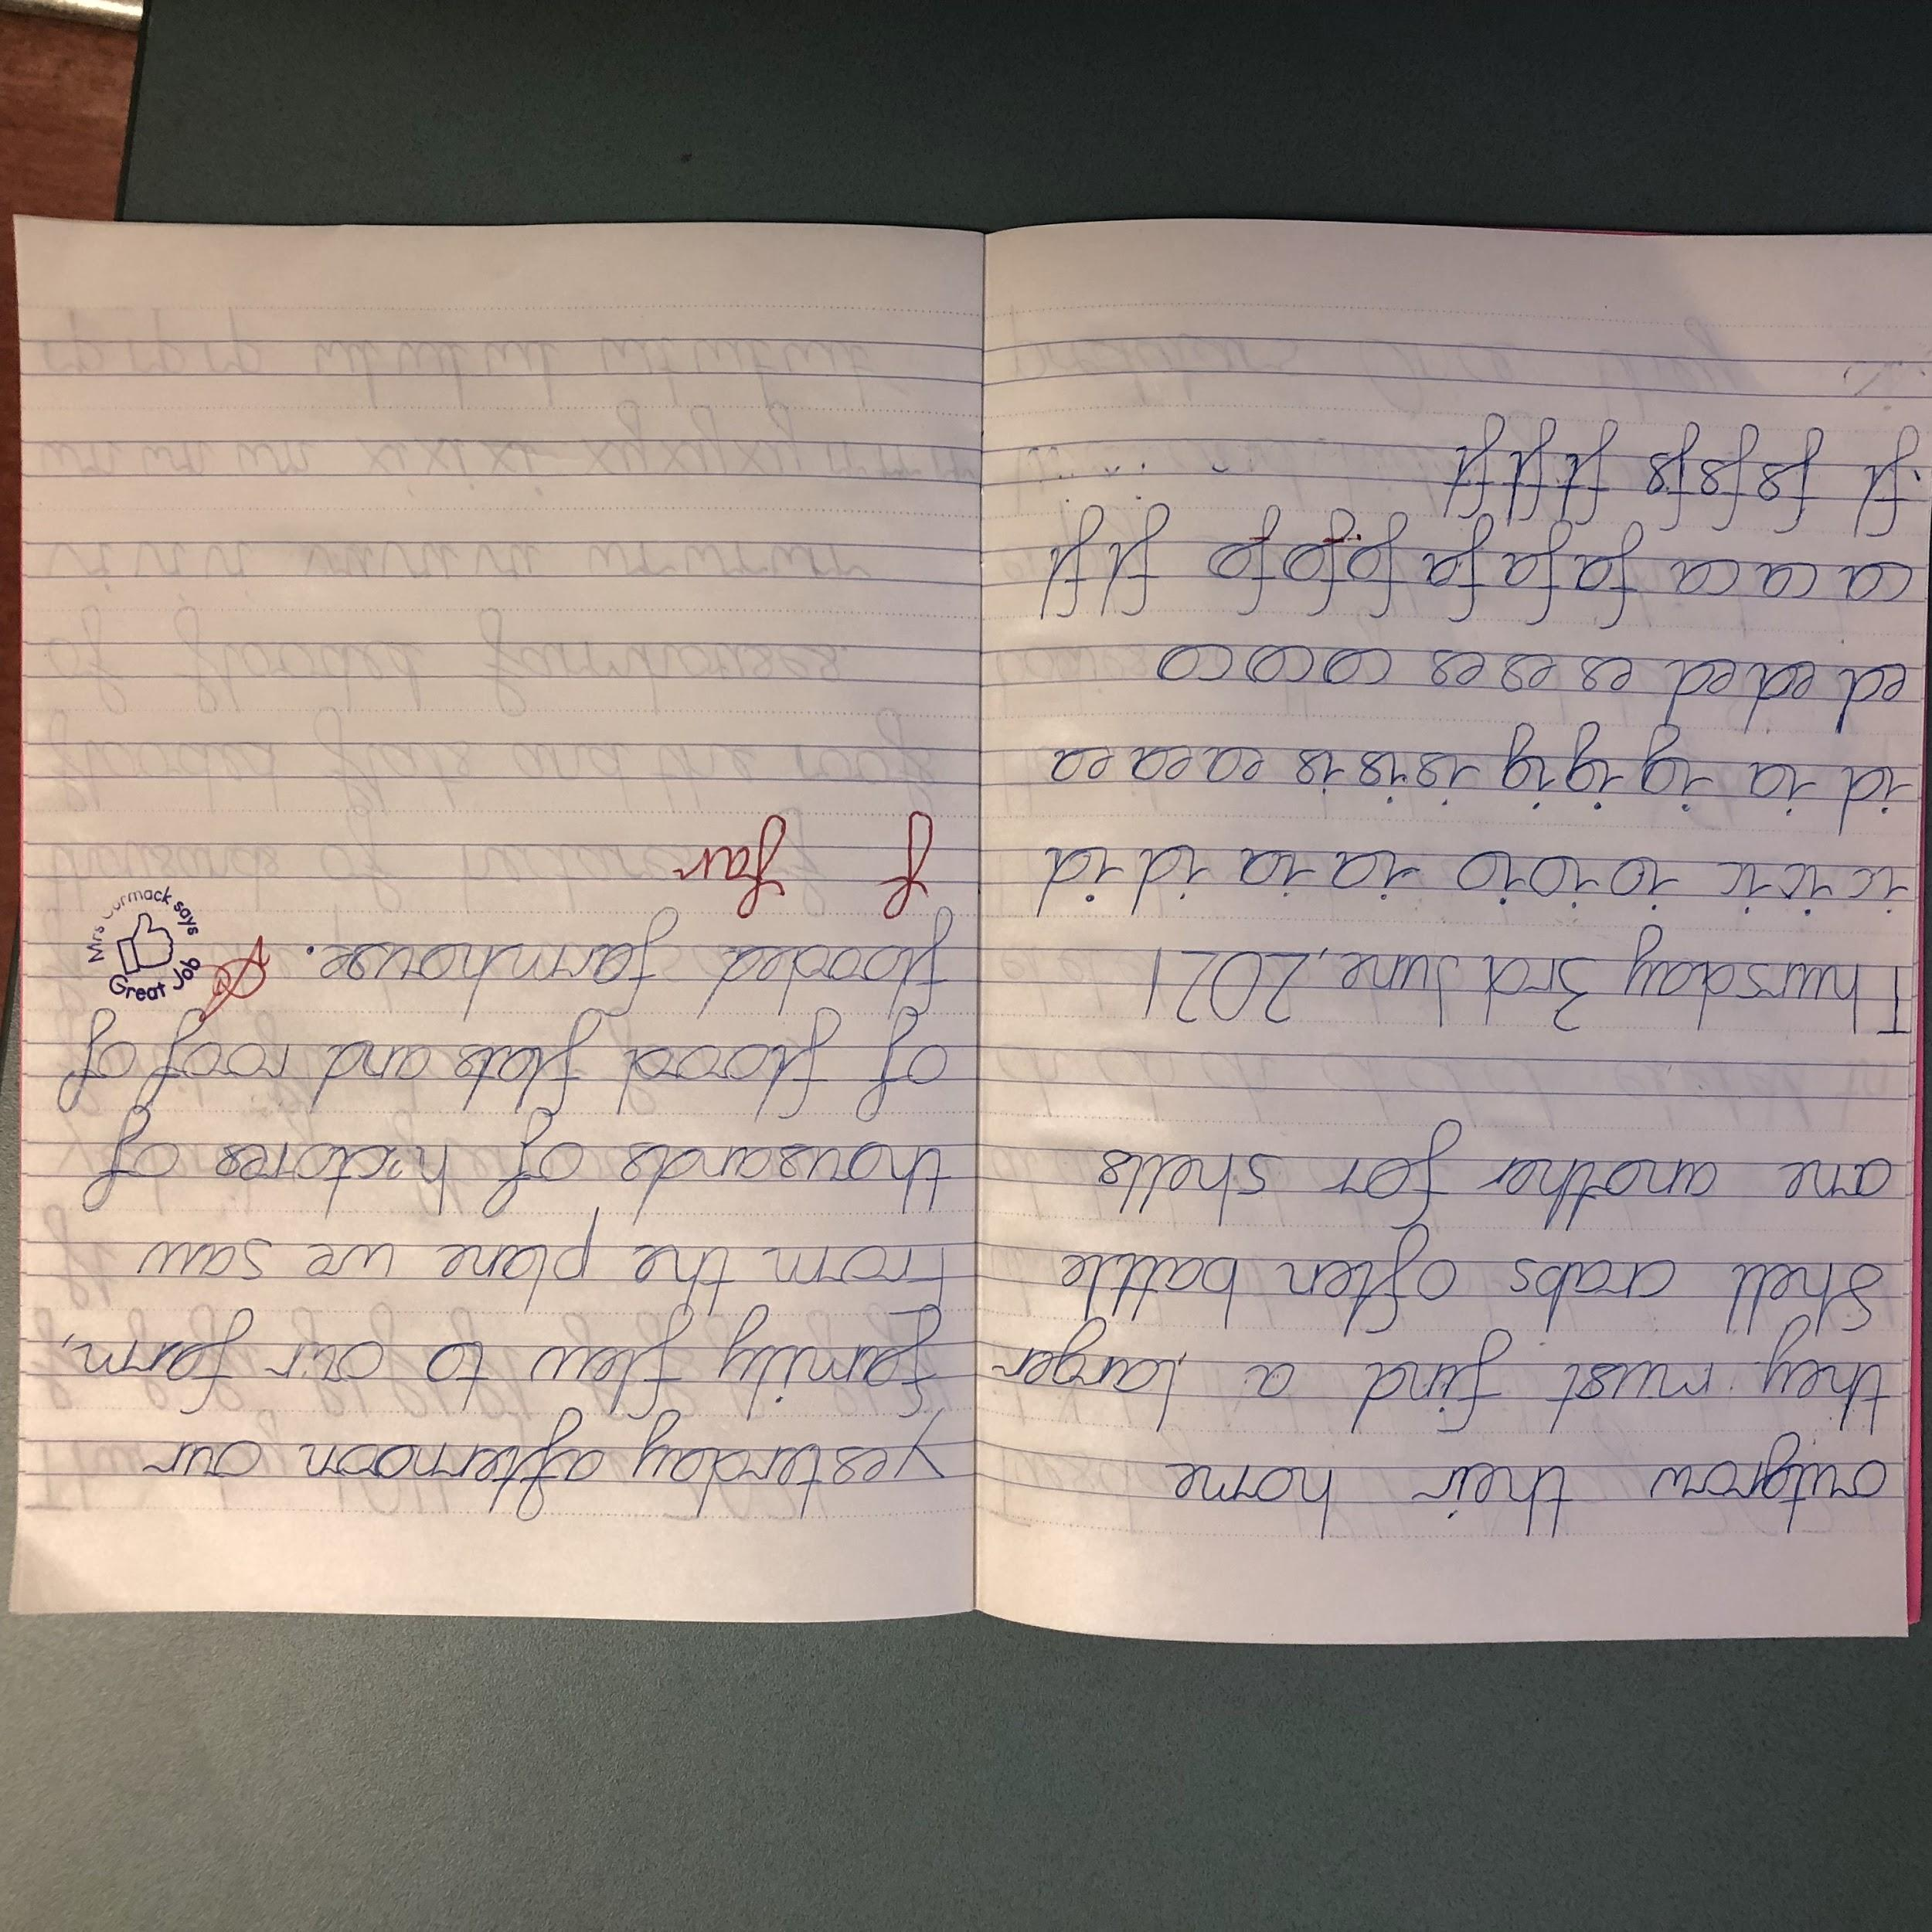 outgrow their home
they must find a larger
Shell crabs often battle
one another for shells
Thursday 3rd June, 2021
ic ic ic io io io ia ia id id
id ia ig ig ig is is is ea ea ea
ed ed ed es es es co co co
ca ca ca fa fa fa fo fo fo fl fl
fl fs fs fs ft ft ft
yesterday afternoon our
family flew to our farm,
From the plane we saw
thousands of hectores of
of flood flats and roof of
flooded farmhouse.
Great Job
Mrs Cormack says
f far